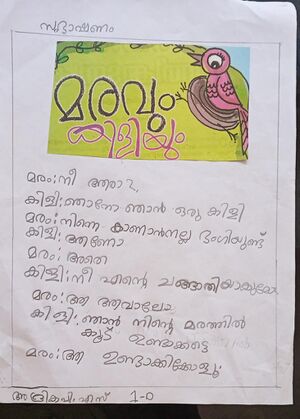 സംഭാഷണം
മരവും
കിളിയും
മരം: നീ ആരാ?
കിളി: ഞാനോ ഞാൻ ഒരു കിളി
മരം: നിന്നെ കാണാൻനല്ല ഭംഗിയുണ്ട്
കിളി: ആണോ
മരം: അതെ
കിളി: നീ എന്റെ ചങ്ങാതിയാകുമോ
മരം: ആ ആവാലോ
കിളി: ഞാൻ നിന്റെ മരത്തിൽ
കൂട് ഉണ്ടാക്കട്ടെ
മരം: ആ ഉണ്ടാക്കിക്കോളൂ
1-D